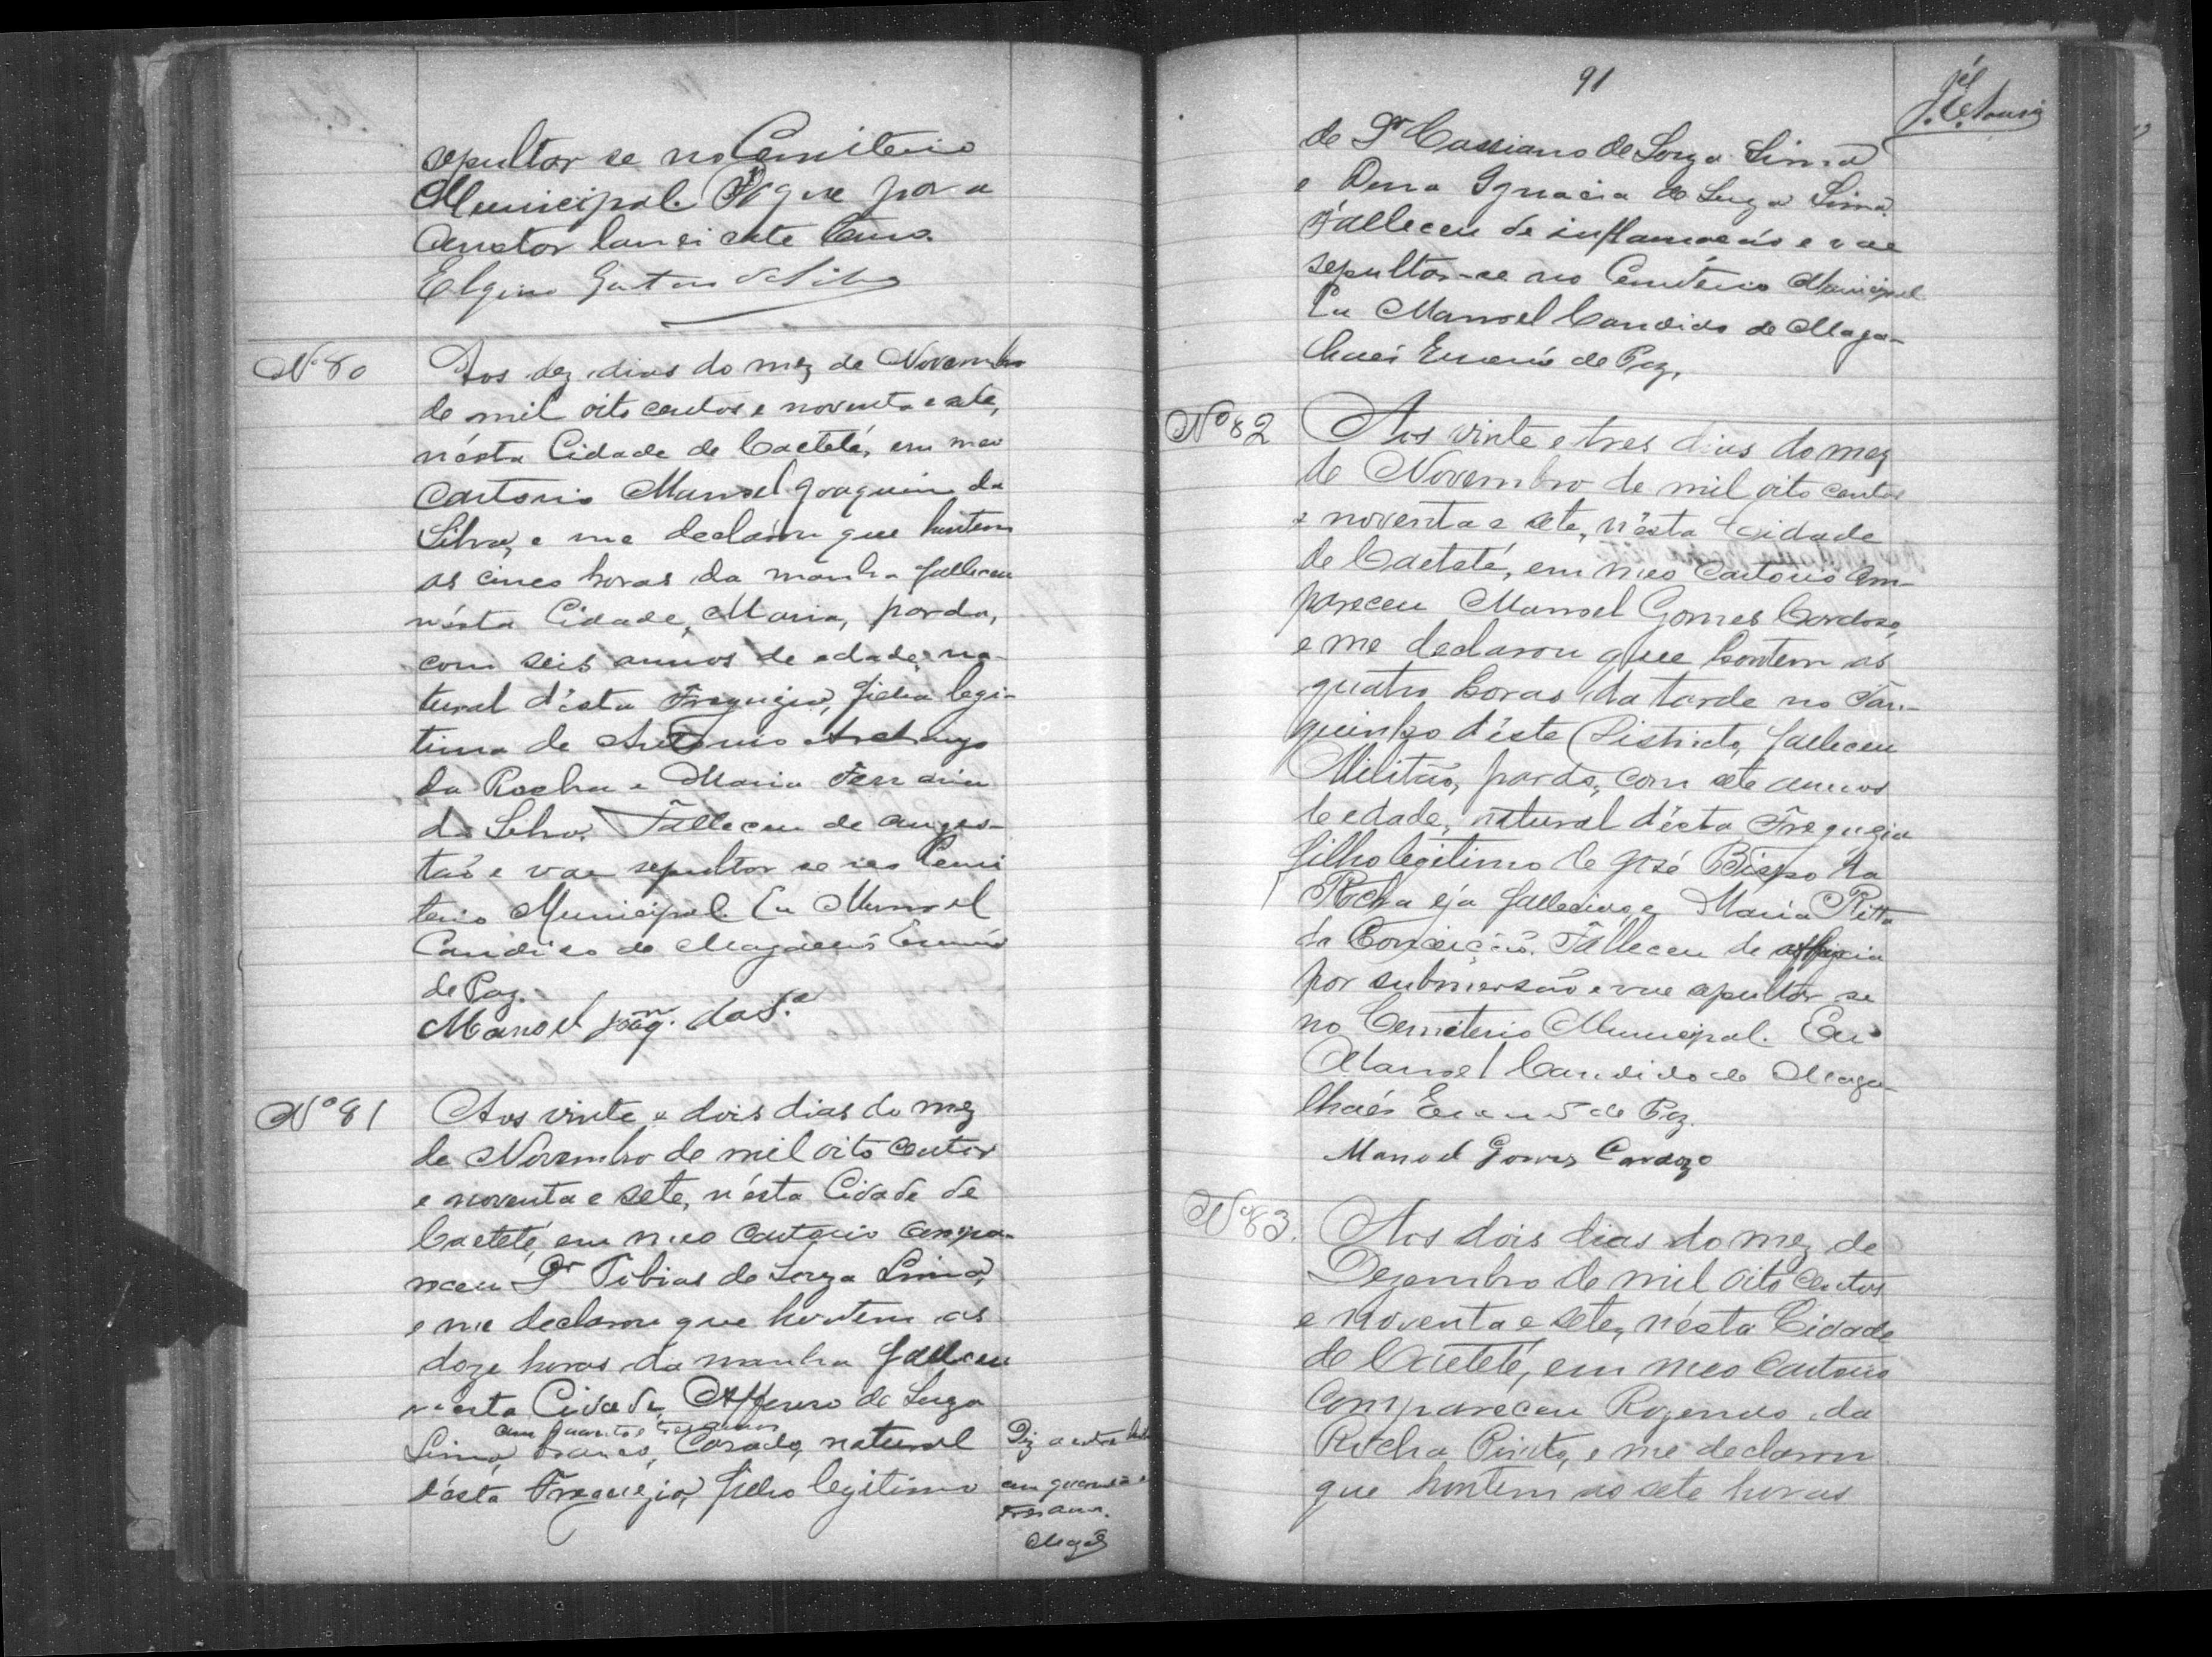 sepultar se no Cemiterio
Municipal. Do que para
constar lancei este termo.
Elgino Gustavo da Silva
Nº 80
Aos dez dias do mez de Novembro
de mil oito centos e noventa e sete,
nésta Cidade de Caeteté, em meo
Cartorio Manoel Joaquim da
Silva, e me declarou que hontem
as cinco horas da manha falleceu
nésta Cidade, Maria, parda,
com seis annos de edade, na-
tural d'ésta Freguezia, filha legi-
tima de Antonio Archanjo
da Rocha e Maria
da Silva. Falleceu de conges-
taõ e vae sepultar se no Cemi
terio Municipal. Eu Manoel
Candido de Magalhaẽs Escrivaõ
de Paz.
Manoel Joaqm. da Sa.
Nº 81
Aos vinte e dois dias do mez
de Novembro de mil oito centos
e noventa e sete, n'ésta Cidade de
Caeteté, em meo Cartorio compa-
receu Dr Tibias de Souza Lima,
e me declarou que hontem as
doze horas da manha falleceu
n'esta Cidade, Affonso de Souza
com quarenta e tres annos
Lima, branco, Casado, natural
d'ésta Freguezia, filho legitimo
Diz a entre linha
com quarenta e
tres annos.
Magẽs
91
de Dr Cassiano de Souza Lima
e Dona Ignacia de Souza Lima.
Falleceu de inflamacaõ e vae
sepultar-se no Cemiterio Municipal
Eu Manoel Candido de Maga-
lhaẽs Escrivaõ de Paz.
Nº 82
Aos vinte e tres dias do mez
de Novembro de mil oito centos
e noventa e sete, n'ésta Cidade
de Caeteté, em meo Cartorio Com-
pareceu Manoel Gomes Cardoso,
e me declarou que hontem as
quatro horas da tarde no Tan-
quinho d'éste Districto, falleceu
Militaõ, pardo, com sete annos
de edade, natural d'ésta Freguezia
filho legitimo de José Bispo da
Rocha já fallecido, e Maria Ritta
da Conceiçaõ. Falleceu de asfixia
por submersaõ e vae sepultar se
no Cemiterio Municipal. Eu
Manoel Candido de Maga-
lhaẽs Escrivaõ de Paz.
Manoel Gomes Cardozo
Nº 83.
Aos dois dias do mez de
Dezembro de mil oito centos
e noventa e sete, n'ésta Cidade
de Caeteté, em meo Cartorio
Compareceu Rozendo da
Rocha Pinto, e me declarou
que hontem as sete horas